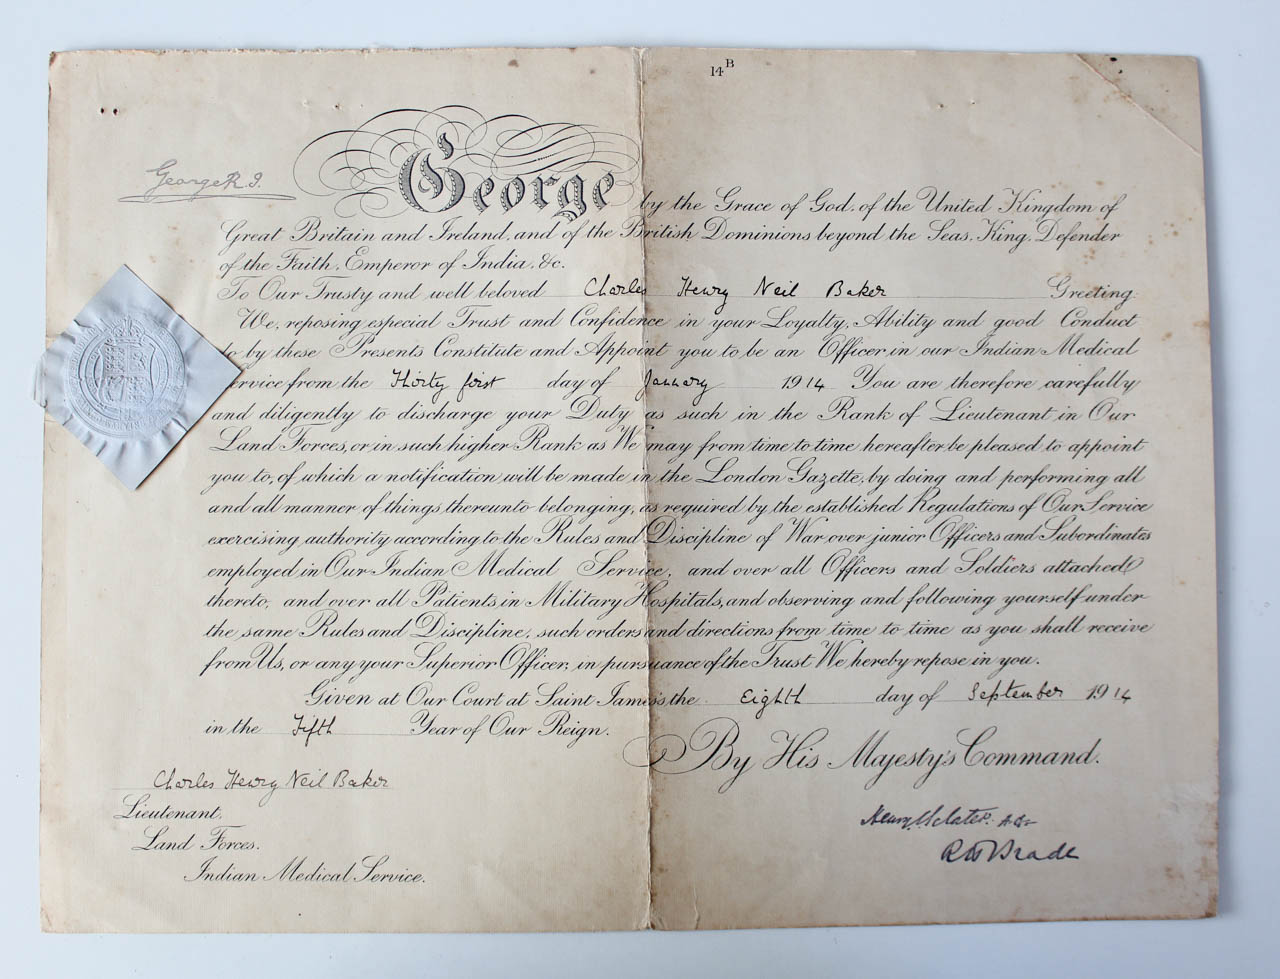 14B
George R. I.
George by the Grace of God, of the United Kingdom of
Great Britain and Ireland, and of the British Dominions beyond the Seas, King, Defender
of the Faith, Emperor of India, &c.
To Our Trusty and well beloved Charles Henry Neil Baker Greeting:
We, reposing especial Trust and Confidence in your Loyalty, Ability and good Conduct
do by these Presents Constitute and Appoint you to be an Officer in our Indian Medical
Service from the Thirty first day of January 1914 You are therefore carefully
and diligently to discharge your Duty as such in the Rank of Lieutenant in Our
Land Forces, or in such higher Rank as We may from time to time hereafter be pleased to appoint
you to, of which a notification will be made in the London Gazette, by doing and performing all
and all manner of things thereunto belonging, as required by the established Regulations of Our Service
exercising authority according to the Rules and Discipline of War over junior Officers and Subordinates
employed in Our Indian Medical Service, and over all Officers and Soldiers attached
thereto, and over all Patients in Military Hospitals, and observing and following yourself under
the same Rules and Discipline, such orders and directions from time to time as you shall receive
from Us, or any your Superior Officer, in pursuance of the Trust We hereby repose in you.
Given at Our Court at Saint James's the Eighth day of September 1914
in the Fifth Year of Our Reign.
By His Majesty's Command.
Charles Henry Neil Baker
Lieutenant.
Land Forces.
Indian Medical Service.
R H Brade